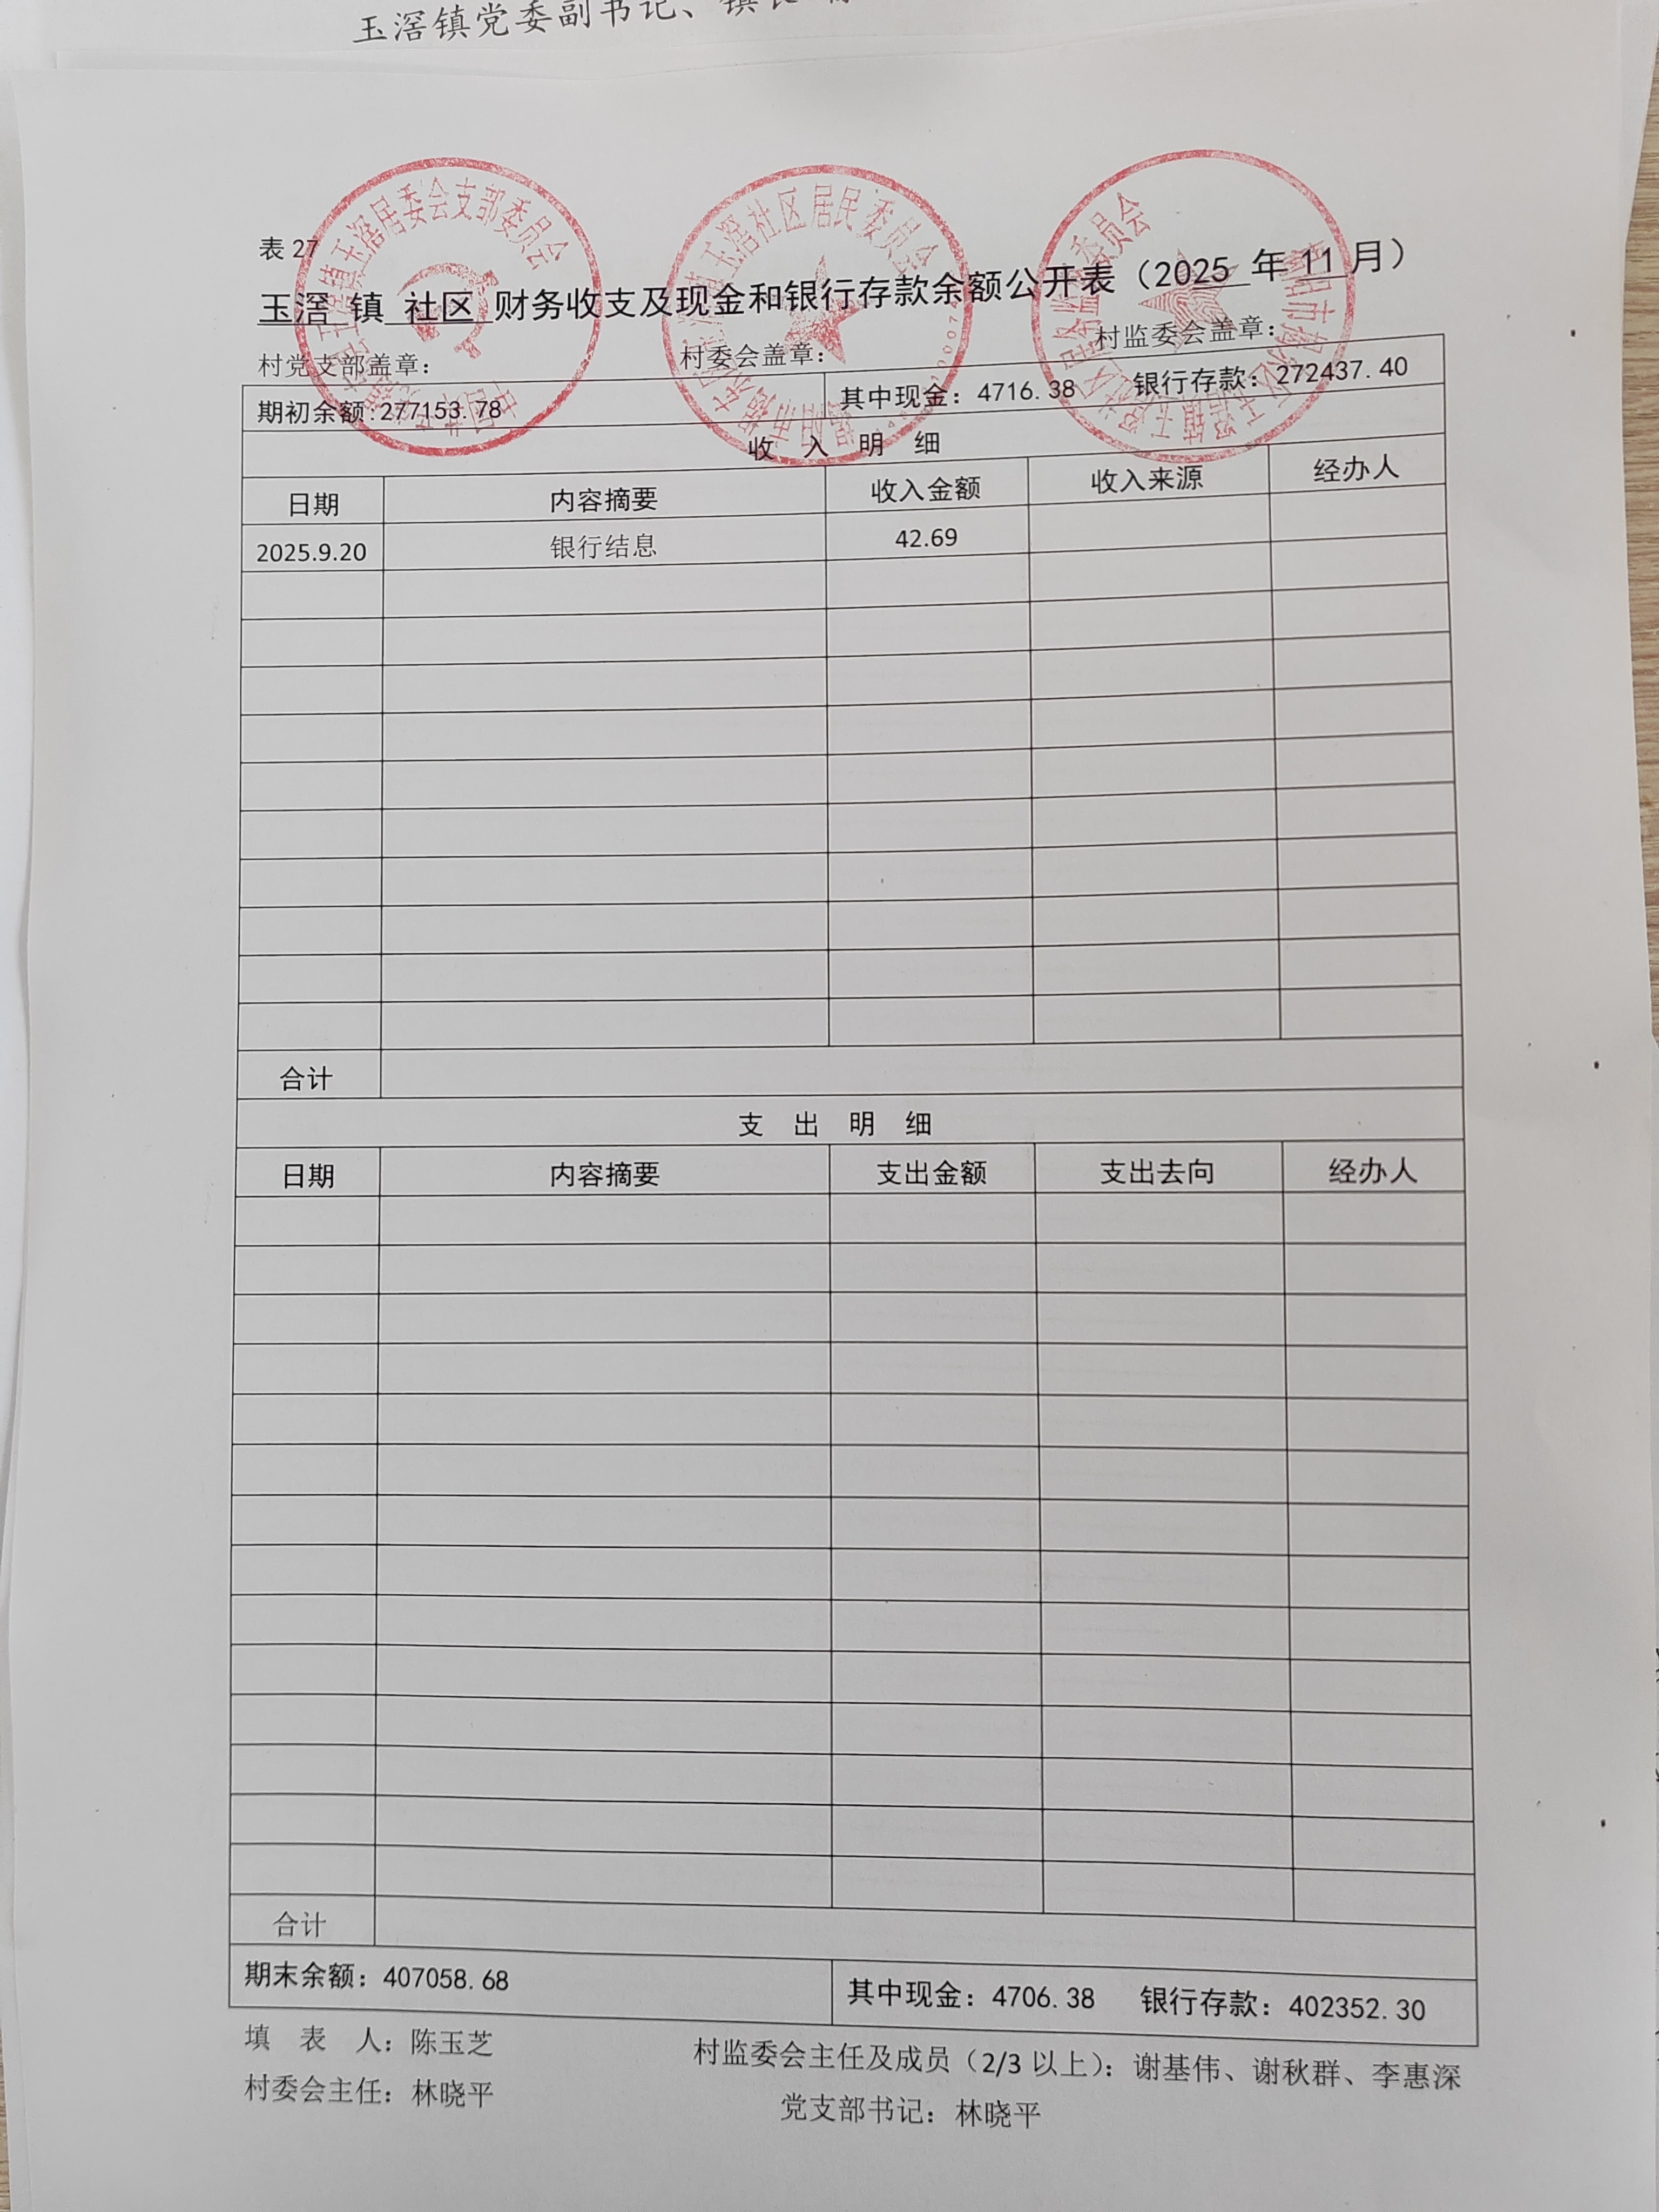 玉滘镇党委副书记、镇长
表 27
玉滘 镇 社区 财务收支及现金和银行存款余额公开表（2025 年 11 月）
村党支部盖章： 村委会盖章： 村监委会盖章：
期初余额:277153.78 其中现金：4716.38 银行存款：272437.40
收 入 明 细
日期 内容摘要 收入金额 收入来源 经办人
2025.9.20 银行结息 42.69
合计
支 出 明 细
日期 内容摘要 支出金额 支出去向 经办人
合计
期末余额：407058.68 其中现金：4706.38 银行存款：402352.30
填 表 人：陈玉芝 村监委会主任及成员（2/3 以上）：谢基伟、谢秋群、李惠深
村委会主任：林晓平 党支部书记：林晓平